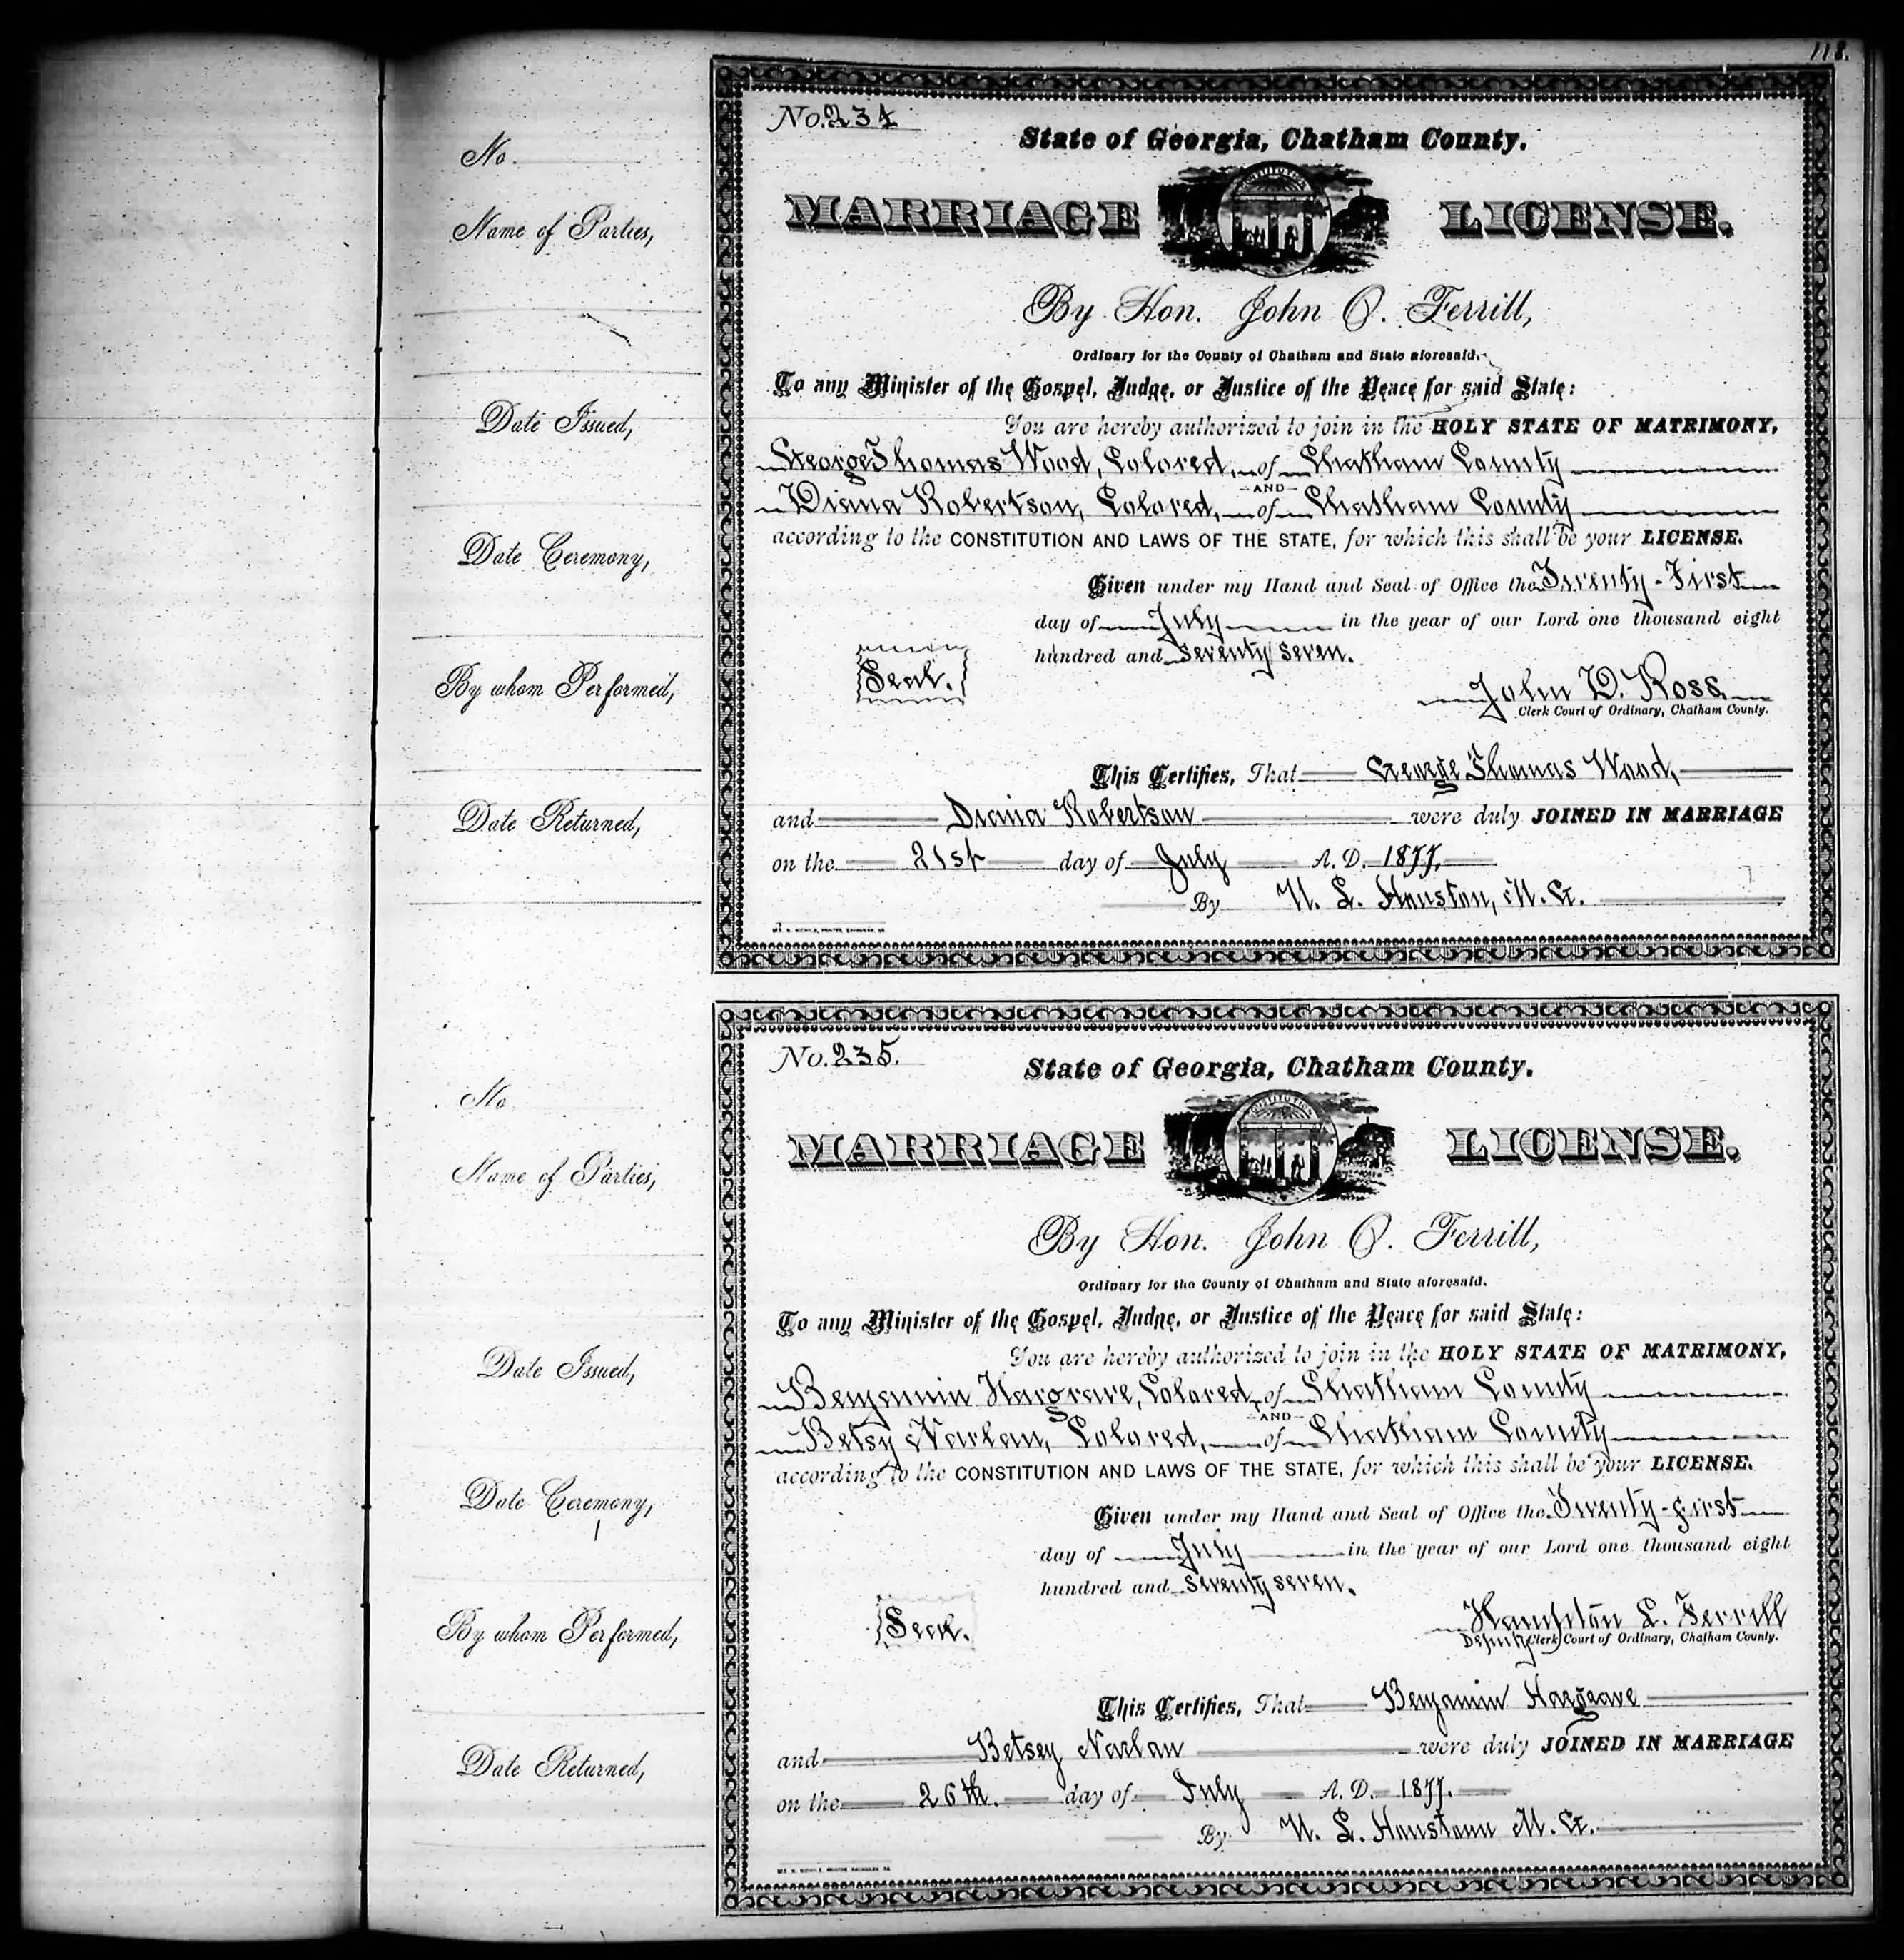 118.
No.
Name of Parties,
Date Issued,
Date Ceremony,
By whom Performed,
Date Returned,
No. 234
State of Georgia, Chatham County.
MARRIAGE LICENSE.
CONSTITUTION
By Hon. John O. Ferrill,
Ordinary for the County of Chatham and State aforesaid.
To any Minister of the Gospel, Judge, or Justice of the Peace for said State:
You are hereby authorized to join in the HOLY STATE OF MATRIMONY,
George Thomas Wood, Colored, of Chatham County
AND
Diana Robertson, Colored, of Chatham County
according to the CONSTITUTION AND LAWS OF THE STATE, for which this shall be your LICENSE.
Given under my Hand and Seal of Office the Twenty-First
day of July in the year of our Lord one thousand eight
hundred and seventy seven.
Seal.
John D. Ross.
Clerk Court of Ordinary, Chatham County.
This Certifies, That George Thomas Wood,
and Diana Robertson were duly JOINED IN MARRIAGE
on the 21st day of July A. D. 1877,
By U. L. Houston, M. G.
No
Name of Parties,
Date Issued,
Date Ceremony,
By whom Performed,
Date Returned,
No. 235.
State of Georgia, Chatham County.
MARRIAGE LICENSE.
CONSTITUTION
By Hon. John O. Ferrill,
Ordinary for the County of Chatham and State aforesaid.
To any Minister of the Gospel, Judge, or Justice of the Peace for said State:
You are hereby authorized to join in the HOLY STATE OF MATRIMONY,
Benjamin Hargrave, Colored, of Chatham County
AND
Betsy Narlan, Colored, of Chatham County
according to the CONSTITUTION AND LAWS OF THE STATE, for which this shall be your LICENSE.
Given under my Hand and Seal of Office the Twenty-first
day of July in the year of our Lord one thousand eight
hundred and seventy seven.
Seal.
Hampton L. Ferrill
Deputy Clerk Court of Ordinary, Chatham County.
This Certifies, That Benjamin Hargrave
and Betsey Narlan were duly JOINED IN MARRIAGE
on the 26th. day of July A. D. 1877.
By U. L. Houstonn M. G.